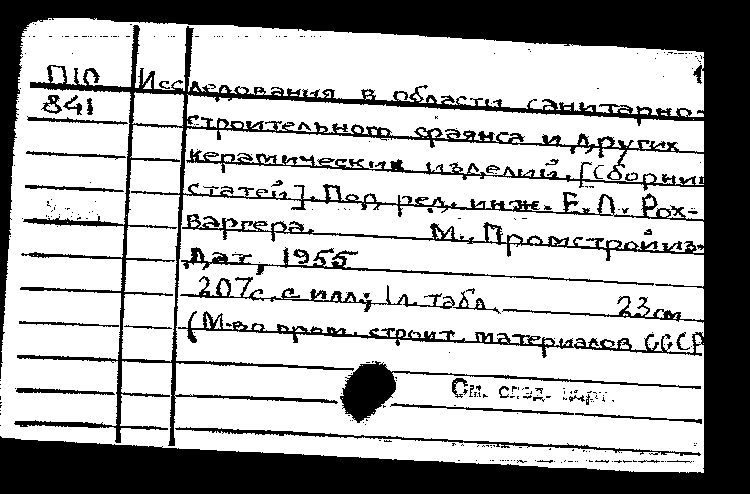 1
П10 Исследования в области санитарно-
841 строительного фаянса и других
керамических изделий. [Сборник
статей]. Под ред. инж. Е.Л. Рох-
варгера. М., Промстройиз-
дат, 1955
207с. с илл; 1л. табл. 23см
(М-во пром. строит. материалов СССР
См. след. карт.